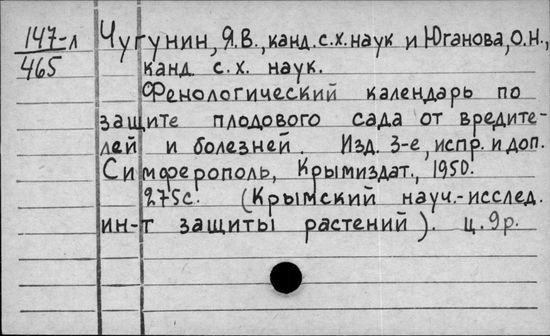 147-л
465
Чугунин, Я.В., канд. с.х. наук и Юганова, О.Н.,
канд. с. х. наук.
Фенологический календарь по
защите плодового сада от вредите-
лей и болезней. Изд. 3-е, испр. и доп.
Симферополь, Крымиздат., 1950.
275с. (Крымский науч.-исслед.
ин-т защиты растений). ц. 9р.